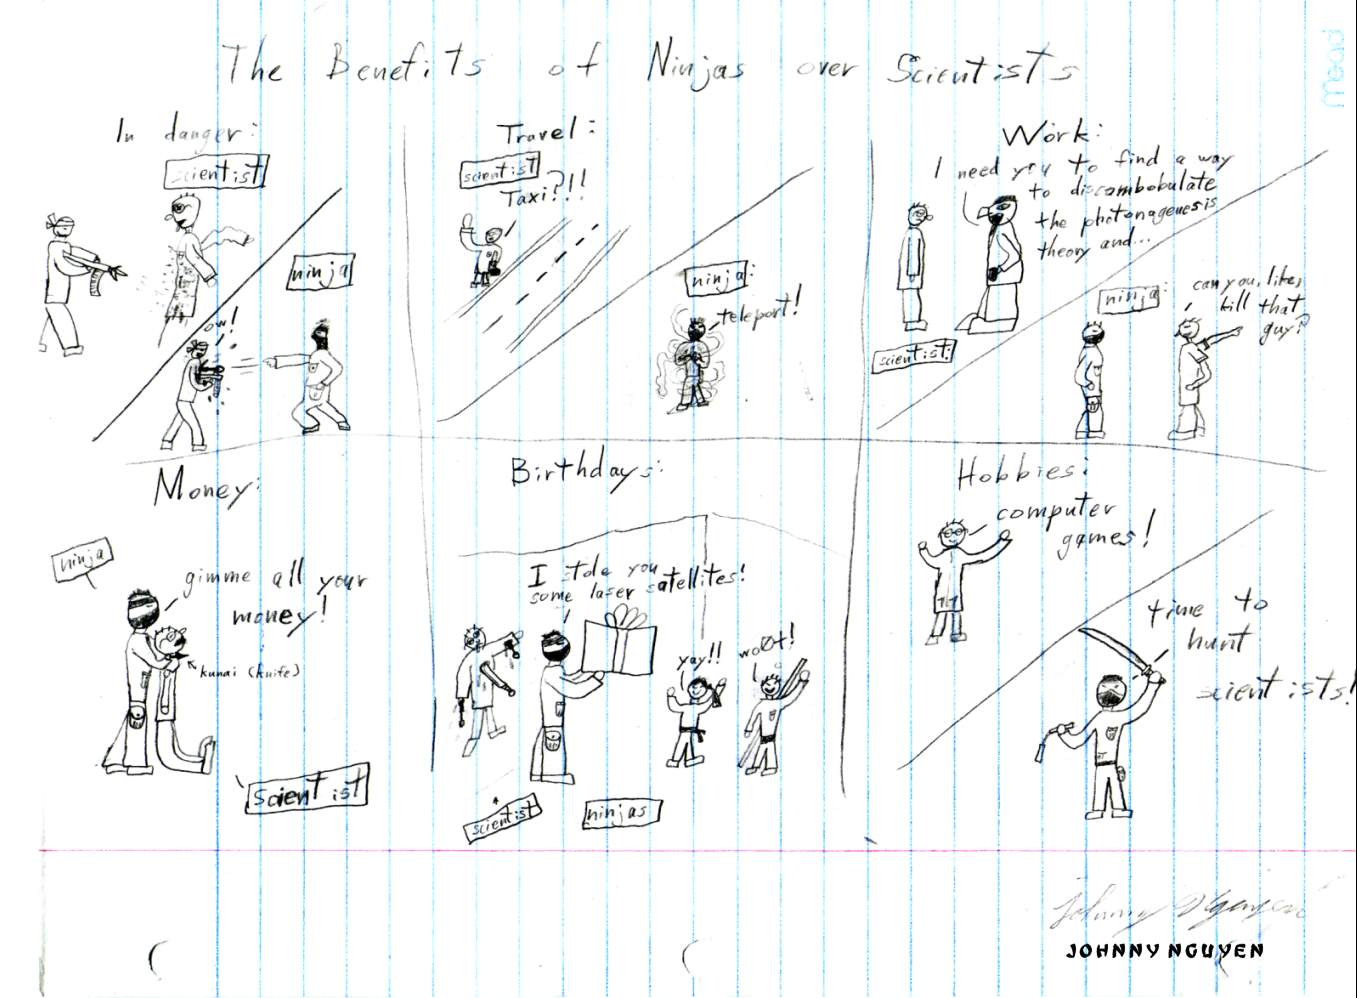 The Benefits of Ninjas over Scientists
Mead
In danger:
scientist
ninja
ow!
Travel:
scientist
Taxi?!!
ninja:
teleport!
Work:
I need you to find a way
to discombobulate
the photonagenesis
theory and...
scientist:
ninja:
can you, like,
kill that
guy?
Money:
ninja
gimme all your
money!
kunai (knife)
scientist
Birthdays:
I stole you
some laser satellites!
yay!!
wo0t!
scientist
ninjas
Hobbies:
computer
games!
time to
hunt
scientists!
Johnny Nguyen
JOHNNY NGUYEN